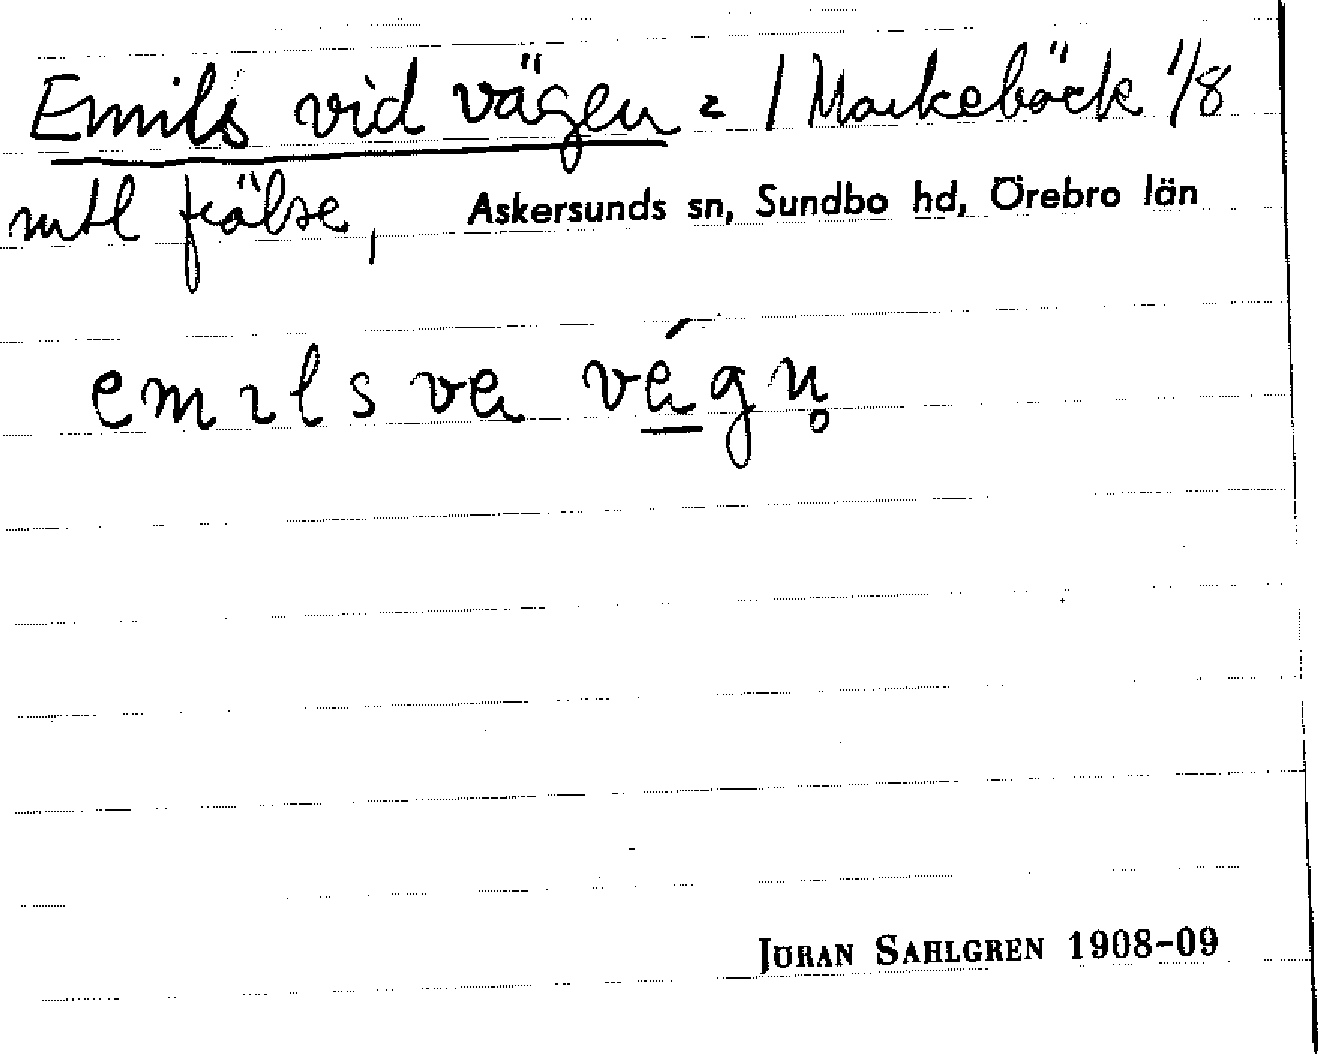 Emils vid vägen = 1 Markebäck 1/8
mtl frälse, Askersunds sn, Sundbo hd, Örebro län
emıls va vág
JÖRAN SAHLGREN 1908-09